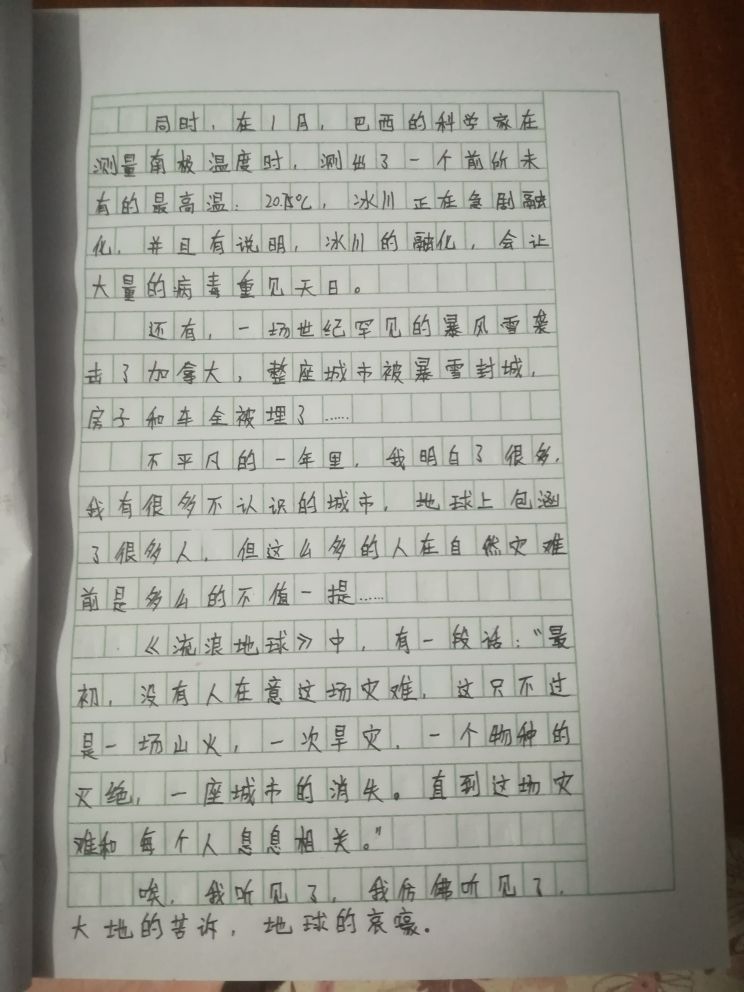 同时，在1月，巴西的科学家在
测量南极温度时，测出了一个前所未
有的最高温：20.75℃，冰川正在急剧融
化，并且有说明，冰川的融化，会让
大量的病毒重见天日。
还有，一场世纪罕见的暴风雪袭
击了加拿大，整座城市被暴雪封城，
房子和车全被埋了……
不平凡的一年里，我明白了很多，
我有很多不认识的城市，地球上包涵
了很多人，但这么多的人在自然灾难
前是多么的不值一提……
《流浪地球》中，有一段话：“最
初，没有人在意这场灾难，这只不过
是一场山火，一次旱灾，一个物种的
灭绝，一座城市的消失。直到这场灾
难和每个人息息相关。”
唉，我听见了，我仿佛听见了，
大地的苦诉，地球的哀嚎。